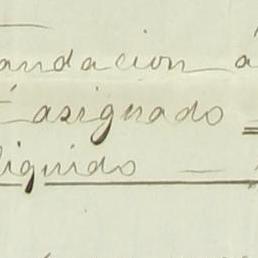 andacion á
É asignado =
liquido —